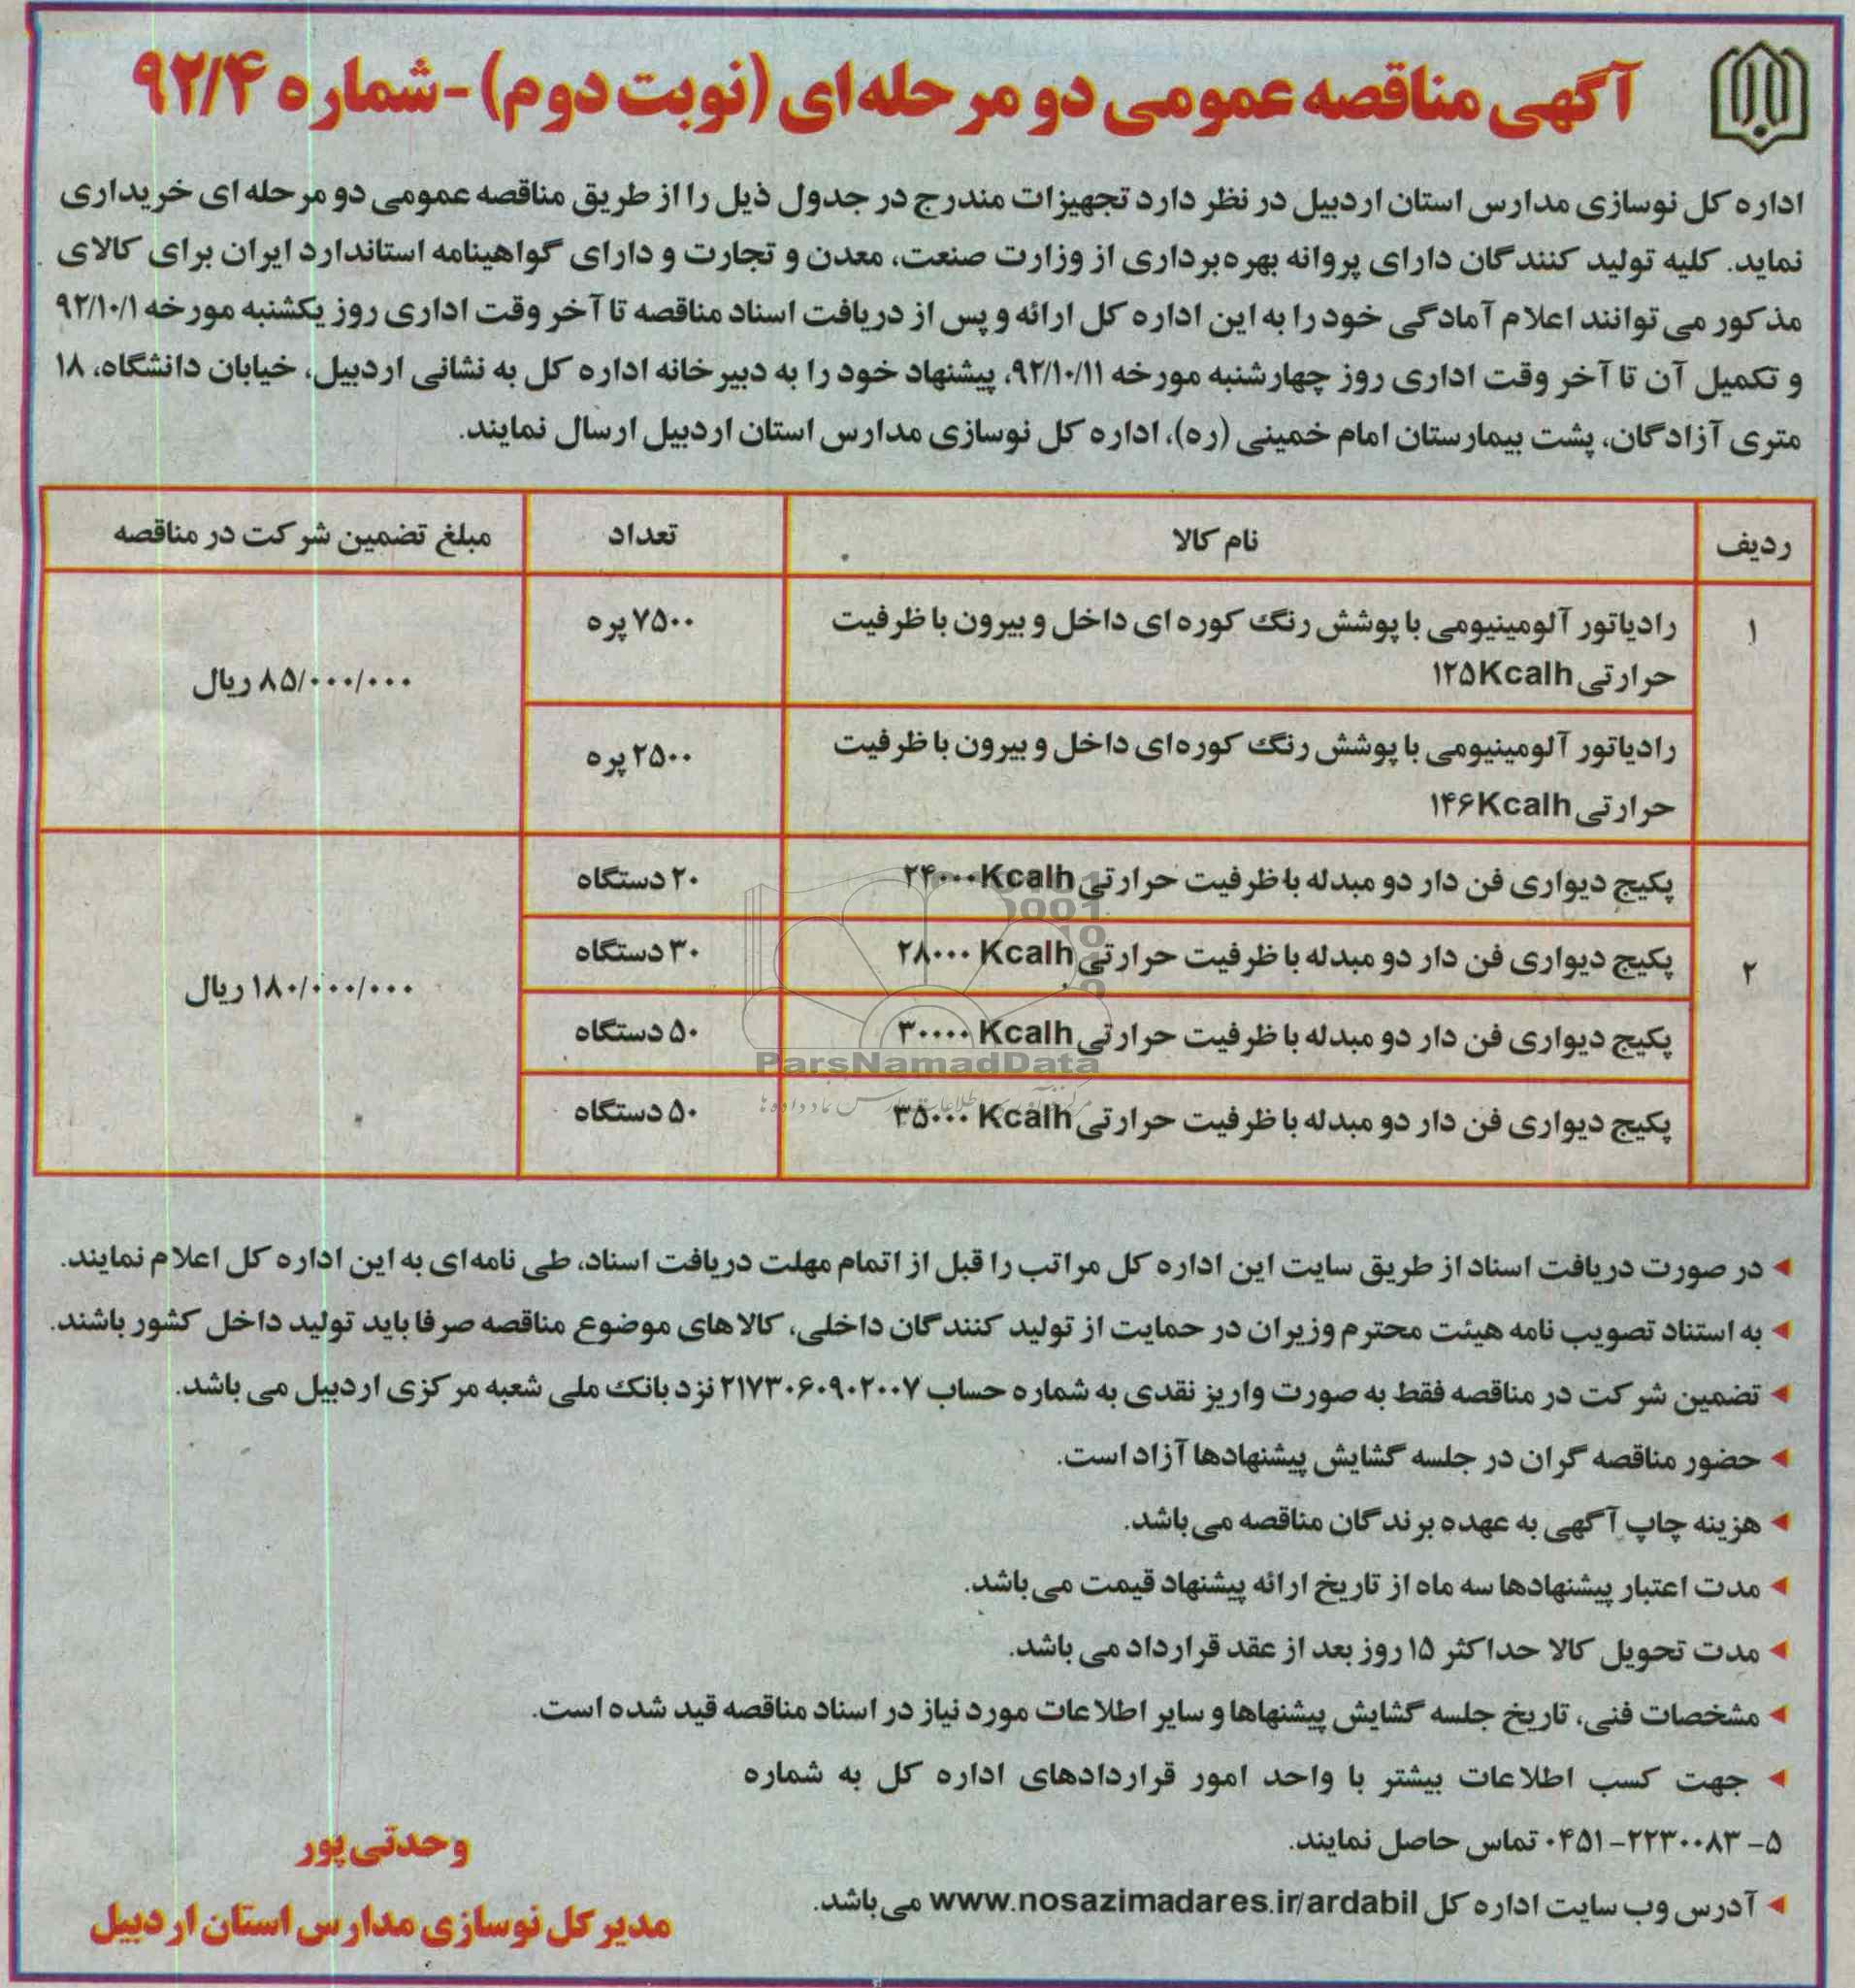 آگهی مناقصه عمومی دو مرحله ای (نوبت دوم) - شماره ۹۲/۴
اداره کل نوسازی مدارس استان اردبیل در نظر دارد تجهیزات مندرج در جدول ذیل را از طریق مناقصه عمومی دو مرحله ای خریداری
نماید. کلیه تولید کنندگان دارای پروانه بهره‌برداری از وزارت صنعت، معدن و تجارت و دارای گواهینامه استاندارد ایران برای کالای
مذکور می توانند اعلام آمادگی خود را به این اداره کل ارائه و پس از دریافت اسناد مناقصه تا آخر وقت اداری روز یکشنبه مورخه ۹۲/۱۰/۱
و تکمیل آن تا آخر وقت اداری روز چهارشنبه مورخه ۹۲/۱۰/۱۱، پیشنهاد خود را به دبیرخانه اداره کل به نشانی اردبیل، خیابان دانشگاه، ۱۸
متری آزادگان، پشت بیمارستان امام خمینی (ره)، اداره کل نوسازی مدارس استان اردبیل ارسال نمایند.
ردیف نام کالا تعداد مبلغ تضمین شرکت در مناقصه
۱ رادیاتور آلومینیومی با پوشش رنگ کوره ای داخل و بیرون با ظرفیت ۷۵۰۰ پره
حرارتی ۱۲۵Kcalh
۸۵/۰۰۰/۰۰۰ ریال
رادیاتور آلومینیومی با پوشش رنگ کوره‌ای داخل و بیرون با ظرفیت ۲۵۰۰ پره
حرارتی ۱۴۶Kcalh
پکیج دیواری فن دار دو مبدله با ظرفیت حرارتی ۲۴۰۰۰Kcalh ۲۰ دستگاه
پکیج دیواری فن دار دو مبدله با ظرفیت حرارتی ۲۸۰۰۰ Kcalh ۳۰ دستگاه
۲ ۱۸۰/۰۰۰/۰۰۰ ریال
پکیج دیواری فن دار دو مبدله با ظرفیت حرارتی ۳۰۰۰۰ Kcalh ۵۰ دستگاه
پکیج دیواری فن دار دو مبدله با ظرفیت حرارتی ۳۵۰۰۰ Kcalh ۵۰ دستگاه
ParsNamadData
در صورت دریافت اسناد از طریق سایت این اداره کل مراتب را قبل از اتمام مهلت دریافت اسناد، طی نامه‌ای به این اداره کل اعلام نمایند.
به استناد تصویب نامه هیئت محترم وزیران در حمایت از تولید کنندگان داخلی، کالاهای موضوع مناقصه صرفا باید تولید داخل کشور باشند.
تضمین شرکت در مناقصه فقط به صورت واریز نقدی به شماره حساب ۲۱۷۳۰۶۰۹۰۲۰۰۷ نزد بانک ملی شعبه مرکزی اردبیل می باشد.
حضور مناقصه گران در جلسه گشایش پیشنهادها آزاد است.
هزینه چاپ آگهی به عهده برندگان مناقصه می‌باشد.
مدت اعتبار پیشنهادها سه ماه از تاریخ ارائه پیشنهاد قیمت می‌باشد.
مدت تحویل کالا حداکثر ۱۵ روز بعد از عقد قرارداد می باشد.
مشخصات فنی، تاریخ جلسه گشایش پیشنهاها و سایر اطلاعات مورد نیاز در اسناد مناقصه قید شده است.
جهت کسب اطلاعات بیشتر با واحد امور قراردادهای اداره کل به شماره
۵- ۲۲۳۰۰۸۳-۰۴۵۱ تماس حاصل نمایند.
آدرس وب سایت اداره کل www.nosazimadares.ir/ardabil می‌باشد.
وحدتی پور
مدیر کل نوسازی مدارس استان اردبیل